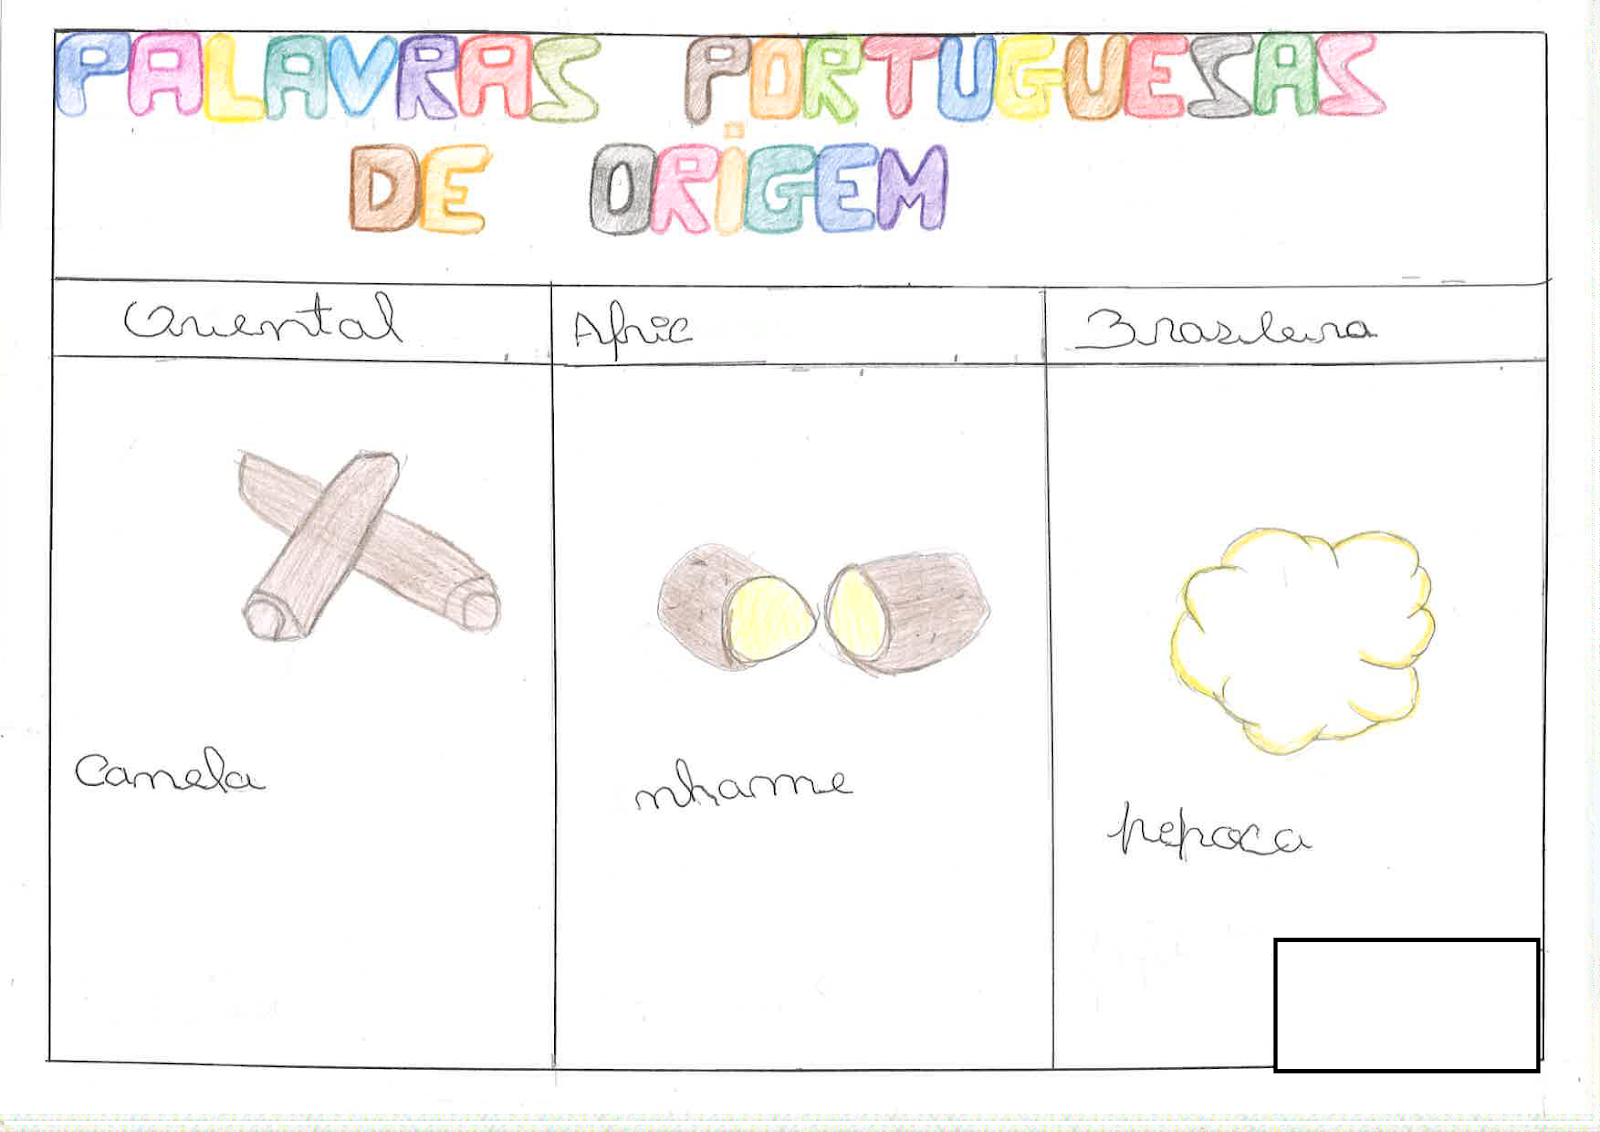 PALAVRAS PORTUGUESAS
DE ORIGEM
Oriental
Afric
Brasileira
Canela
nhame
pepoca